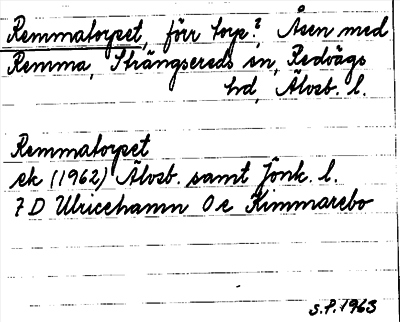 Remmatorpet, förr torp? Åsen med
Remma, Strängsereds sn, Redvägs
hd, Älvsb. l.
Remmatorpet
ek (1962) Älvsb. samt Jönk. l.
7 D Ulricehamn 0 e Kimmarebo
S.P. 1963